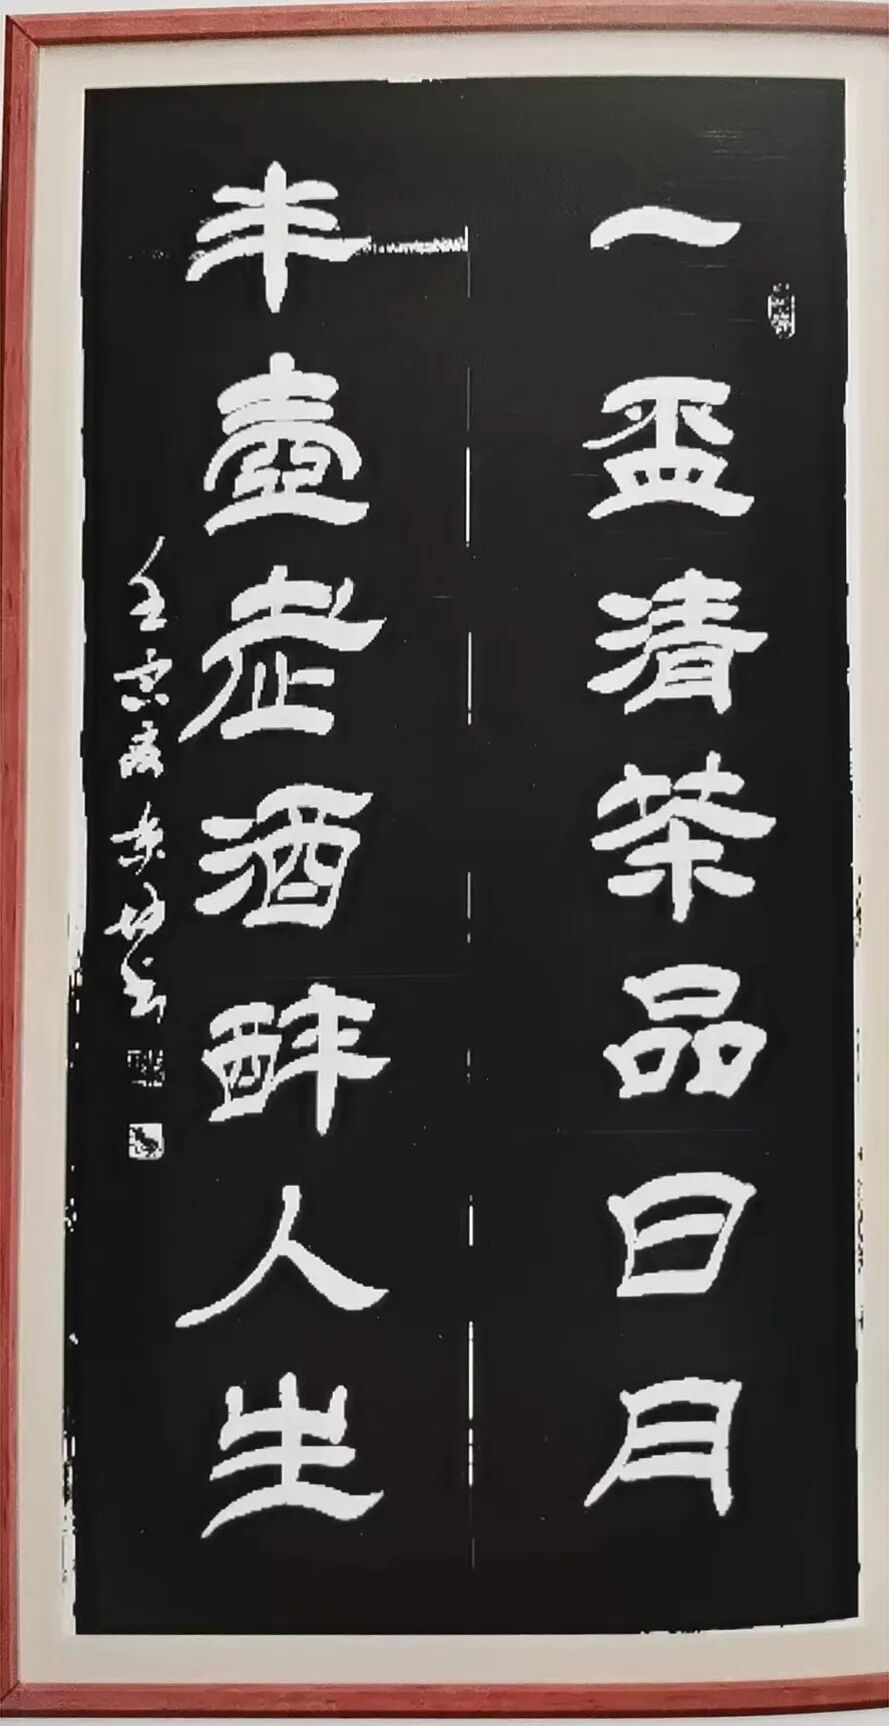 一盃清茶品日月
半壺老酒醉人生